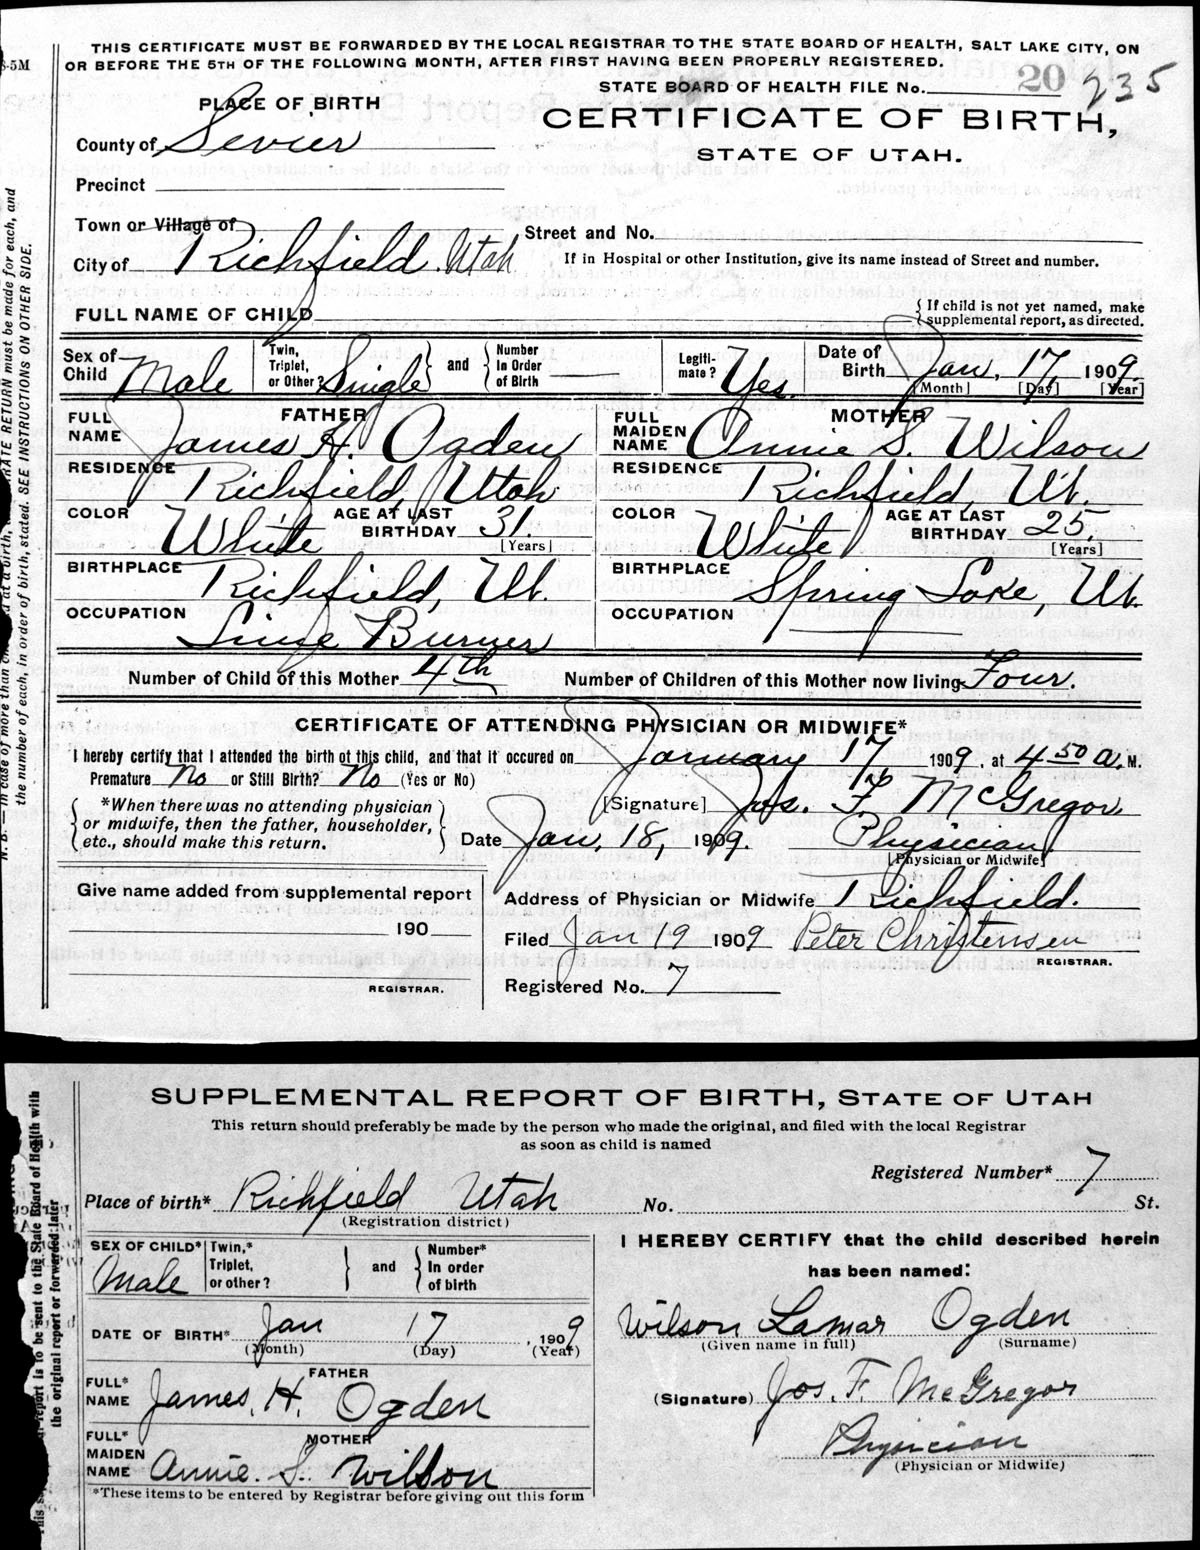 THIS CERTIFICATE MUST BE FORWARDED BY THE LOCAL REGISTRAR TO THE STATE BOARD OF HEALTH, SALT LAKE CITY, ON
OR BEFORE THE 5TH OF THE FOLLOWING MONTH, AFTER FIRST HAVING BEEN PROPERLY REGISTERED.
-5M
STATE BOARD OF HEALTH FILE No. 20 235
PLACE OF BIRTH
CERTIFICATE OF BIRTH,
STATE OF UTAH.
County of Sevier
Precinct
Town or Village of
City of Richfield Utah
Street and No.
If in Hospital or other Institution, give its name instead of Street and number.
FULL NAME OF CHILD
{If child is not yet named, make
supplemental report, as directed.
Sex of Child Male
Twin, Triplet, or Other? Single
and
Number In Order of Birth
Legiti-mate? Yes.
Date of Birth Jan. 17, 1909.
[Month] [Day] [Year]
FATHER
FULL NAME James H. Ogden
RESIDENCE Richfield, Utah
COLOR White AGE AT LAST BIRTHDAY 31. [Years]
BIRTHPLACE Richfield, Ut.
OCCUPATION Lime Burner
MOTHER
FULL MAIDEN NAME Annie S. Wilson
RESIDENCE Richfield, Ut.
COLOR White AGE AT LAST BIRTHDAY 25. [Years]
BIRTHPLACE Spring Lake, Ut.
OCCUPATION
Number of Child of this Mother 4th Number of Children of this Mother now living Four.
CERTIFICATE OF ATTENDING PHYSICIAN OR MIDWIFE*
I hereby certify that I attended the birth of this child, and that it occured on January 17 1909, at 4 50 A. M.
Premature No or Still Birth? No (Yes or No)
*When there was no attending physician
or midwife, then the father, householder,
etc., should make this return.
[Signature] Jos. F. McGregor
Date Jan. 18, 1909. Physician
[Physician or Midwife]
Give name added from supplemental report
190
REGISTRAR.
Address of Physician or Midwife Richfield.
Filed Jan 19 1909 Peter Christensen
REGISTRAR.
Registered No. 7
the number of each, in order of birth, stated. SEE INSTRUCTIONS ON OTHER SIDE.
SUPPLEMENTAL REPORT OF BIRTH, STATE OF UTAH
This return should preferably be made by the person who made the original, and filed with the local Registrar
as soon as child is named
Registered Number* 7
Place of birth* Richfield Utah No. St.
(Registration district)
SEX OF CHILD* Male
Twin,* Triplet, or other?
and
Number* In order of birth
DATE OF BIRTH* Jan 17, 1909
(Month) (Day) (Year)
FATHER
FULL* NAME James. H. Ogden
MOTHER
FULL* MAIDEN NAME Annie. S. Wilson
*These items to be entered by Registrar before giving out this form
I HEREBY CERTIFY that the child described herein
has been named:
Wilson Lamar Ogden
(Given name in full) (Surname)
(Signature) Jos. F. McGregor
Physician
(Physician or Midwife)
report is to be sent to the State Board of Health with
the original report or forwarded later